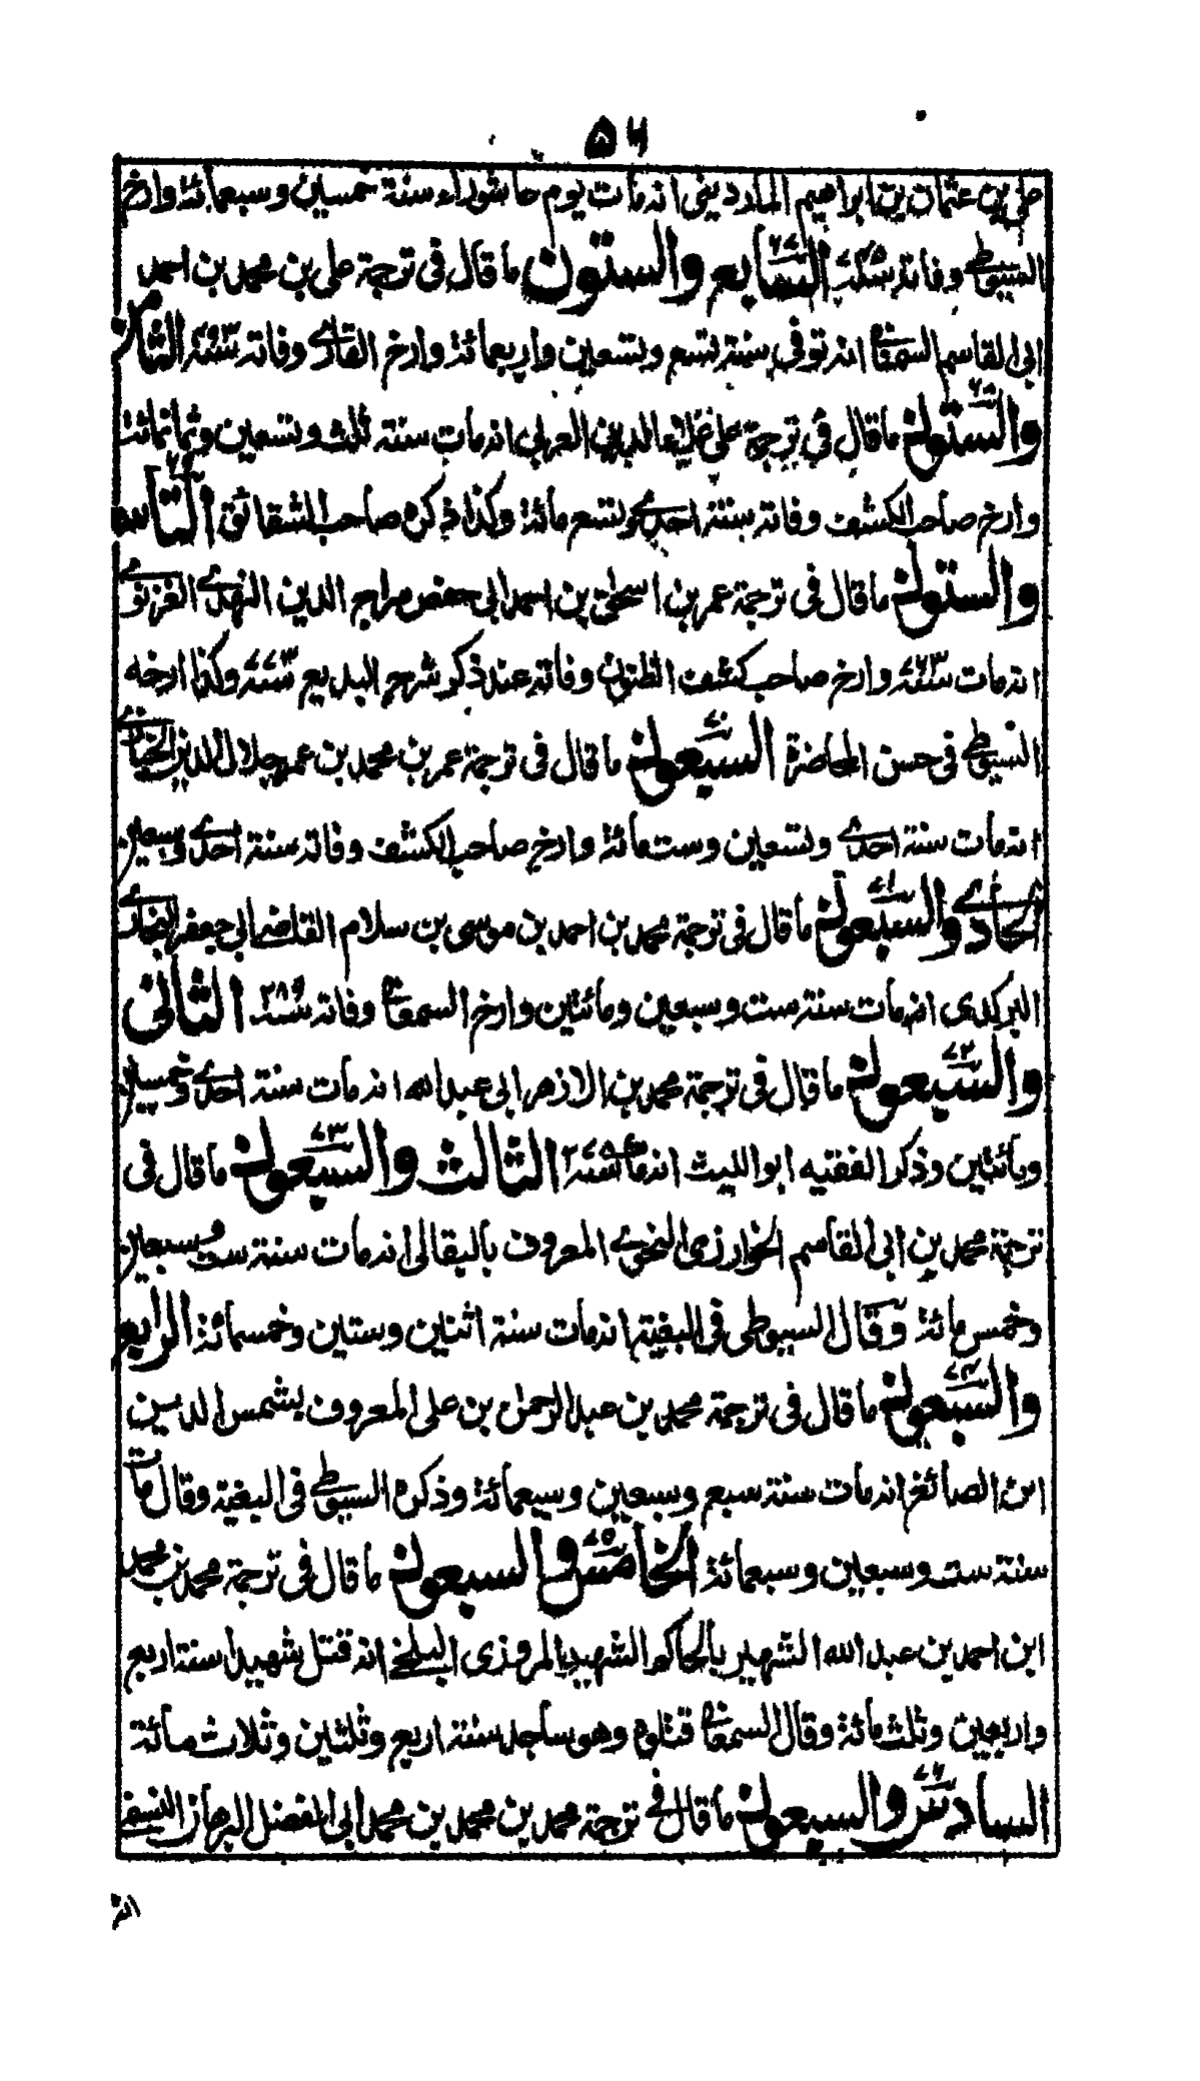 ٥٦
علي بن عثمان بن ابراهيم الماردينى انه مات يوم عاشوراء سنة خمسين وسبعمائة وارخ
السيوطى وفاته السابع والستون ما قال فى ترجمة على بن محمد بن احمد
ابى القاسم السمنانى انه توفى سنة تسع وتسعين واربعمائة وارخ القارى وفاته سنة ٤٩٣ الثامن
والستون ما قال فى ترجمة على علاء الدين العربى انه مات سنة ثلث وتسعين وثمانمائة
وارخ صاحب الكشف وفاته سنة احدى وتسع مائة وكذا ذكره صاحب الشقائق التاسع
والستون ما قال فى ترجمة عمر بن اسحق بن احمد ابى حفص سراج الدين الهندى الغزنوى
انه مات سنة ٧٦٣ وارخ صاحب كشف الظنون وفاته عند ذكر شرح البديع سنة ٧٧٣ وكذا ارخه
السيوطى فى حسن المحاضرة السبعون ٧٠ ما قال فى ترجمة عمر بن محمد بن عمر جلال الدين الخبازى
انه مات سنة احدى وتسعين وست مائة وارخ صاحب الكشف وفاته سنة احدى وسبعين
الحادى والسبعون ٧١ ما قال فى ترجمة محمد بن احمد بن موسى بن سلام القاضى ابى جعفر البخارى
البركدى انه مات سنة ست وسبعين ومائتين وارخ السمعانى وفاته سنة ٢٨٩ الثانى
والسبعون ٧٢ ما قال فى ترجمة محمد بن الازهر ابى عبد الله انه مات سنة احدى وخمسين
ومائتين وذكر الفقيه ابو الليث انه مات سنة ٢٧٨ الثالث والسبعون ٧٣ ما قال فى
ترجمة محمد بن ابى القاسم الخوارزمى النحوى المعروف بالبقالى انه مات سنة ست وسبعين
وخمس مائة وقال السيوطى فى البغية انه مات سنة اثنين وستين وخمسمائة الرابع
والسبعون ٧٤ ما قال فى ترجمة محمد بن عبد الرحمن بن على المعروف بشمس الدين
ابن الصائغ انه مات سنة سبع وسبعين وسبعمائة وذكره السيوطى فى البغية وقال مات
سنة ست وسبعين وسبعمائة الخامس والسبعون ٧٥ ما قال فى ترجمة محمد بن محمد
ابن احمد بن عبد الله الشهير بالحاكم الشهيد المروزى البلخى انه قتل شهيدا سنة اربع
واربعين وثلث مائة وقال السمعانى قتلوه وهو ساجد سنة اربع وثلثين وثلاث مائة
السادس والسبعون ٧٦ ما قال فى ترجمة محمد بن محمد بن محمد ابى الفضل البرهان النسفى